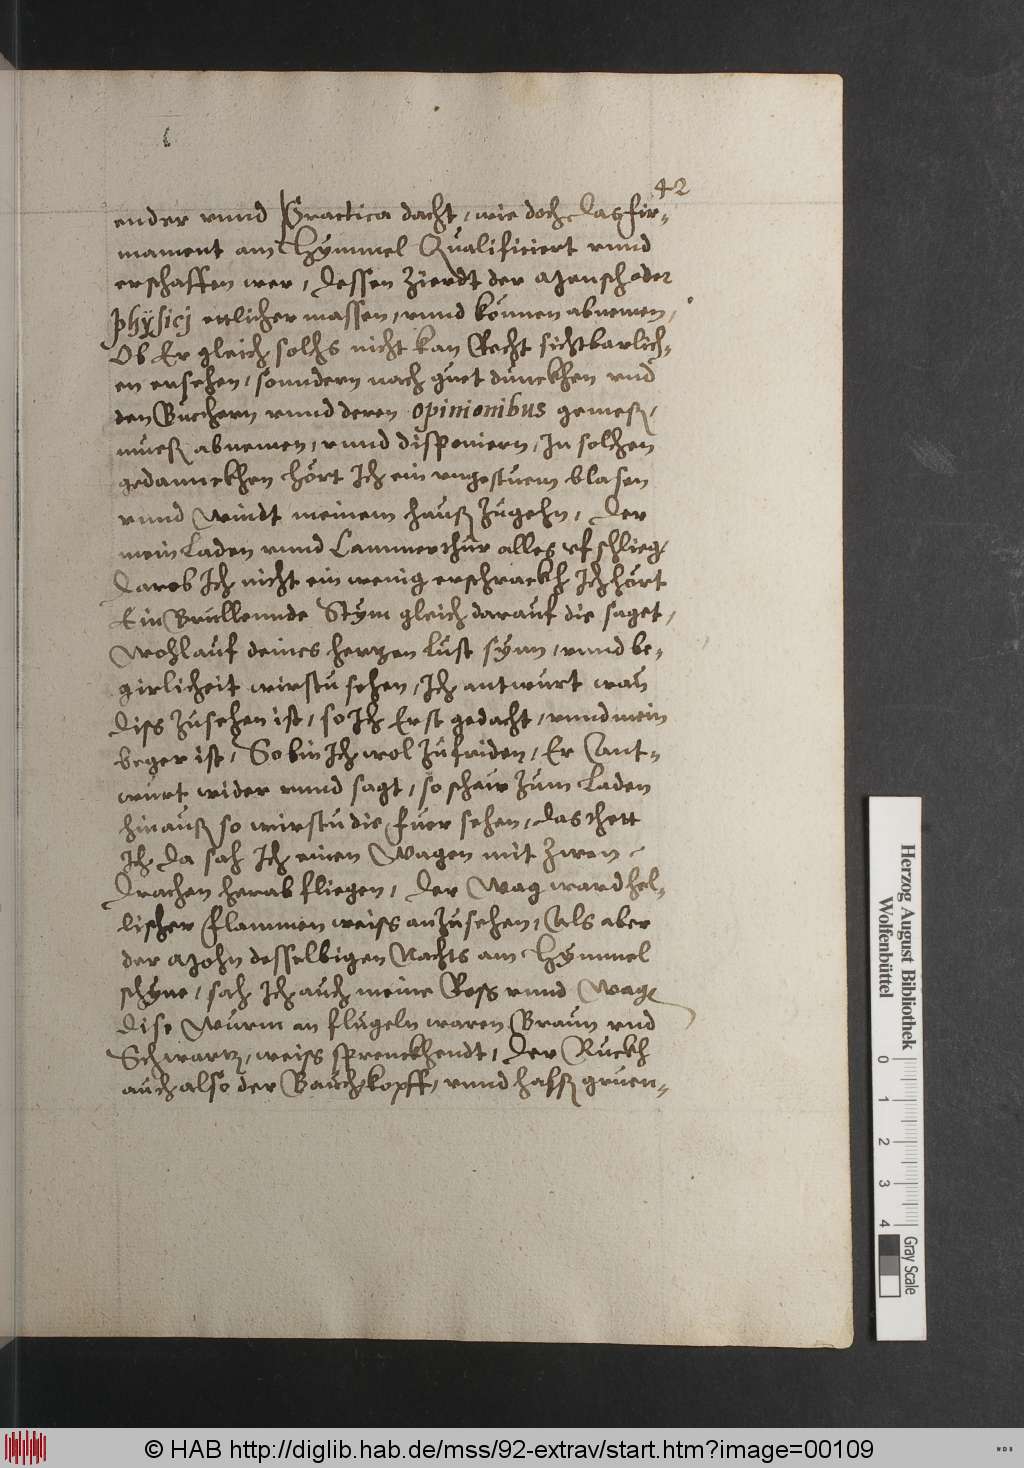 42
ender vnnd Practica dacht, wie doch das fir-
mament am Hymmel Qualificiert vnnd
erschaffen wer, dessen zierdt der Mensch oder
physici ettlicher massen, vnnd können abnemen,
Ob Er gleich solchs nicht kan Recht sichtbarlich-
en ersehen, sonndern nach guet dunckhen vnd
den Buchern vnnd deren opinionibus gemeß,
mueß abnemen, vnnd disponiern, In solchen
gedannckhen hört Ich ein vngestuem blasen
vnnd Windt meinem hauß zugehn, der
mein Laden vnnd Cammerthür alles vfschlieg,
darob Ich nicht ein wenig erschrackh Ich hört
Ein Brullennde Stym gleich darauf die saget,
Wohlauf deines hertzen lust synn, vnnd be-
girlicheit wirstu sehen, Ich antwurt wan
diss zusehen ist, so Ich Erst gedacht, vnnd mein
beger ist, So bin Ich wol zufriden, Er Ant-
wurt wider vnnd sagt, so schaw zum Laden
hinauß so wirstu die fuer sehen, das thett
Ich da sah Ich einen Wagen mit zwen
drachen herab fliegen, der Wag ward hel-
lischer flammen weiss anzusehen, Als aber
der Mohn desselbigen Nachts am Hymmel
schyne, sah Ich auch meine Ross vnnd Wag
dise Wurm an flugeln waren Braun vnd
Schwartz, weiss sprenckhendt, der Ruckh
auch also der Bauch, kopff, vnnd halß gruen-
Herzog August Bibliothek
Wolfenbüttel
0 1 2 3 4
Gray Scale
© HAB http://diglib.hab.de/mss/92-extrav/start.htm?image=00109
WDB